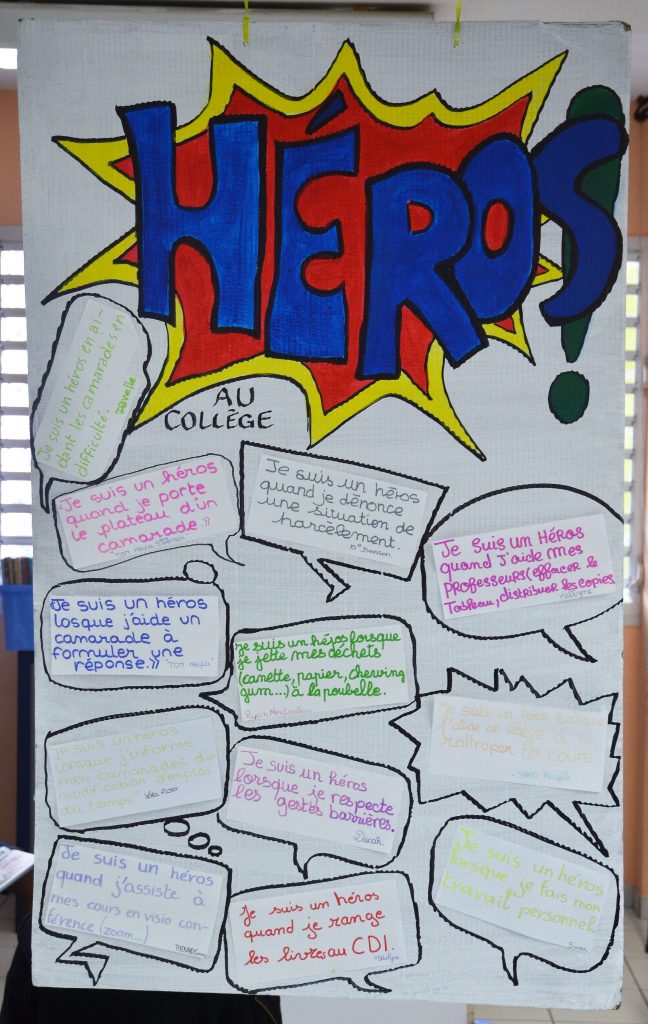 HÉROS!
AU
COLLÈGE
Je suis un héros en ai-
dant les camarades en
difficulté.
"Je suis un héros
quand je porte
le plateau d'un
camarade.»
Je suis un héros
quand je dénonce
une situation de
harcèlement.
Je suis un Héros
quand j'aide mes
professeurs (effacer le
Tableau, distribuer les copies
"Je suis un héros
losque j'aide un
camarade à
formuler une
réponse.»
je suis un héros lorsque
je jette mes déchets
(canette, papier, chewing
gum...) à la poubelle.
Ryan
je suis un héros
j'aide un élève à
rattraper les cours.
Je suis un héros
lorsque j'informe
mes camarades d'une
modification d'emploi
du temps.
Je suis un héros
lorsque je respecte
les gestes barrières.
Je suis un héros
quand j'assiste à
mes cours en visio con-
férence (zoom...)
Je suis un héros
quand je range
les livres au CDI.
Je suis un héros
lorsque je fais mon
travail personnel.